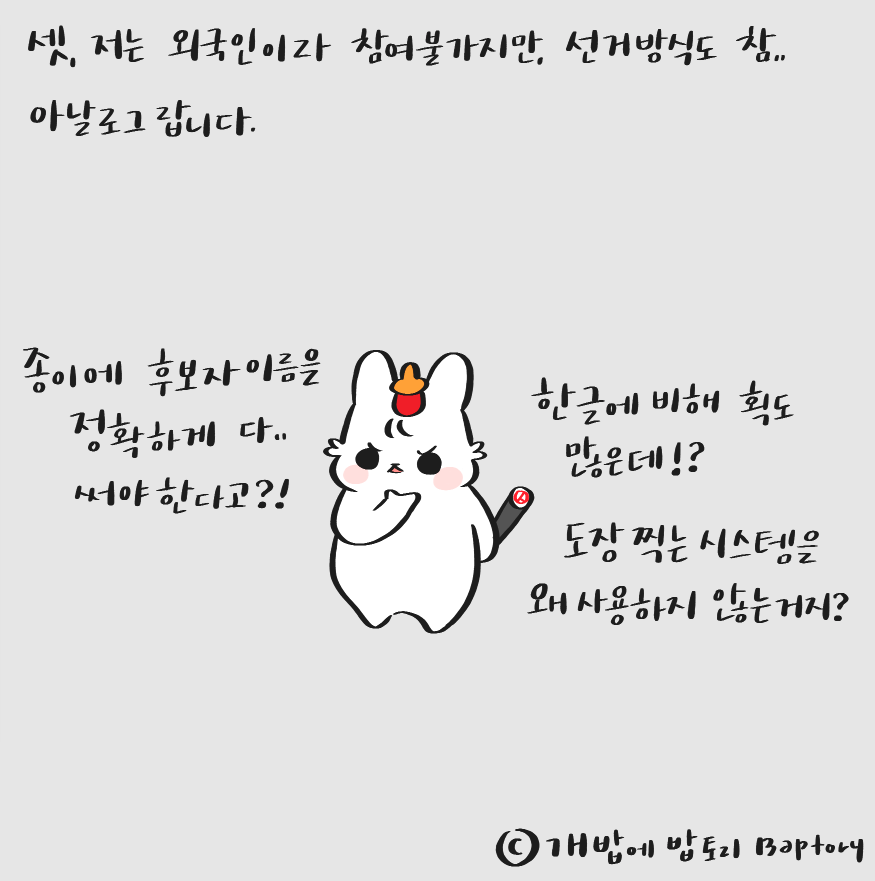 셋, 저는 외국인이라 참여불가지만, 선거방식도 참..
아날로그랍니다.
종이에 후보자이름을
정확하게 다..
써야한다고?!
한글에 비해 획도
많은데!?
도장 찍는 시스템을
왜 사용하지 않는거지?
© 개밥에 밥토리 Baptory